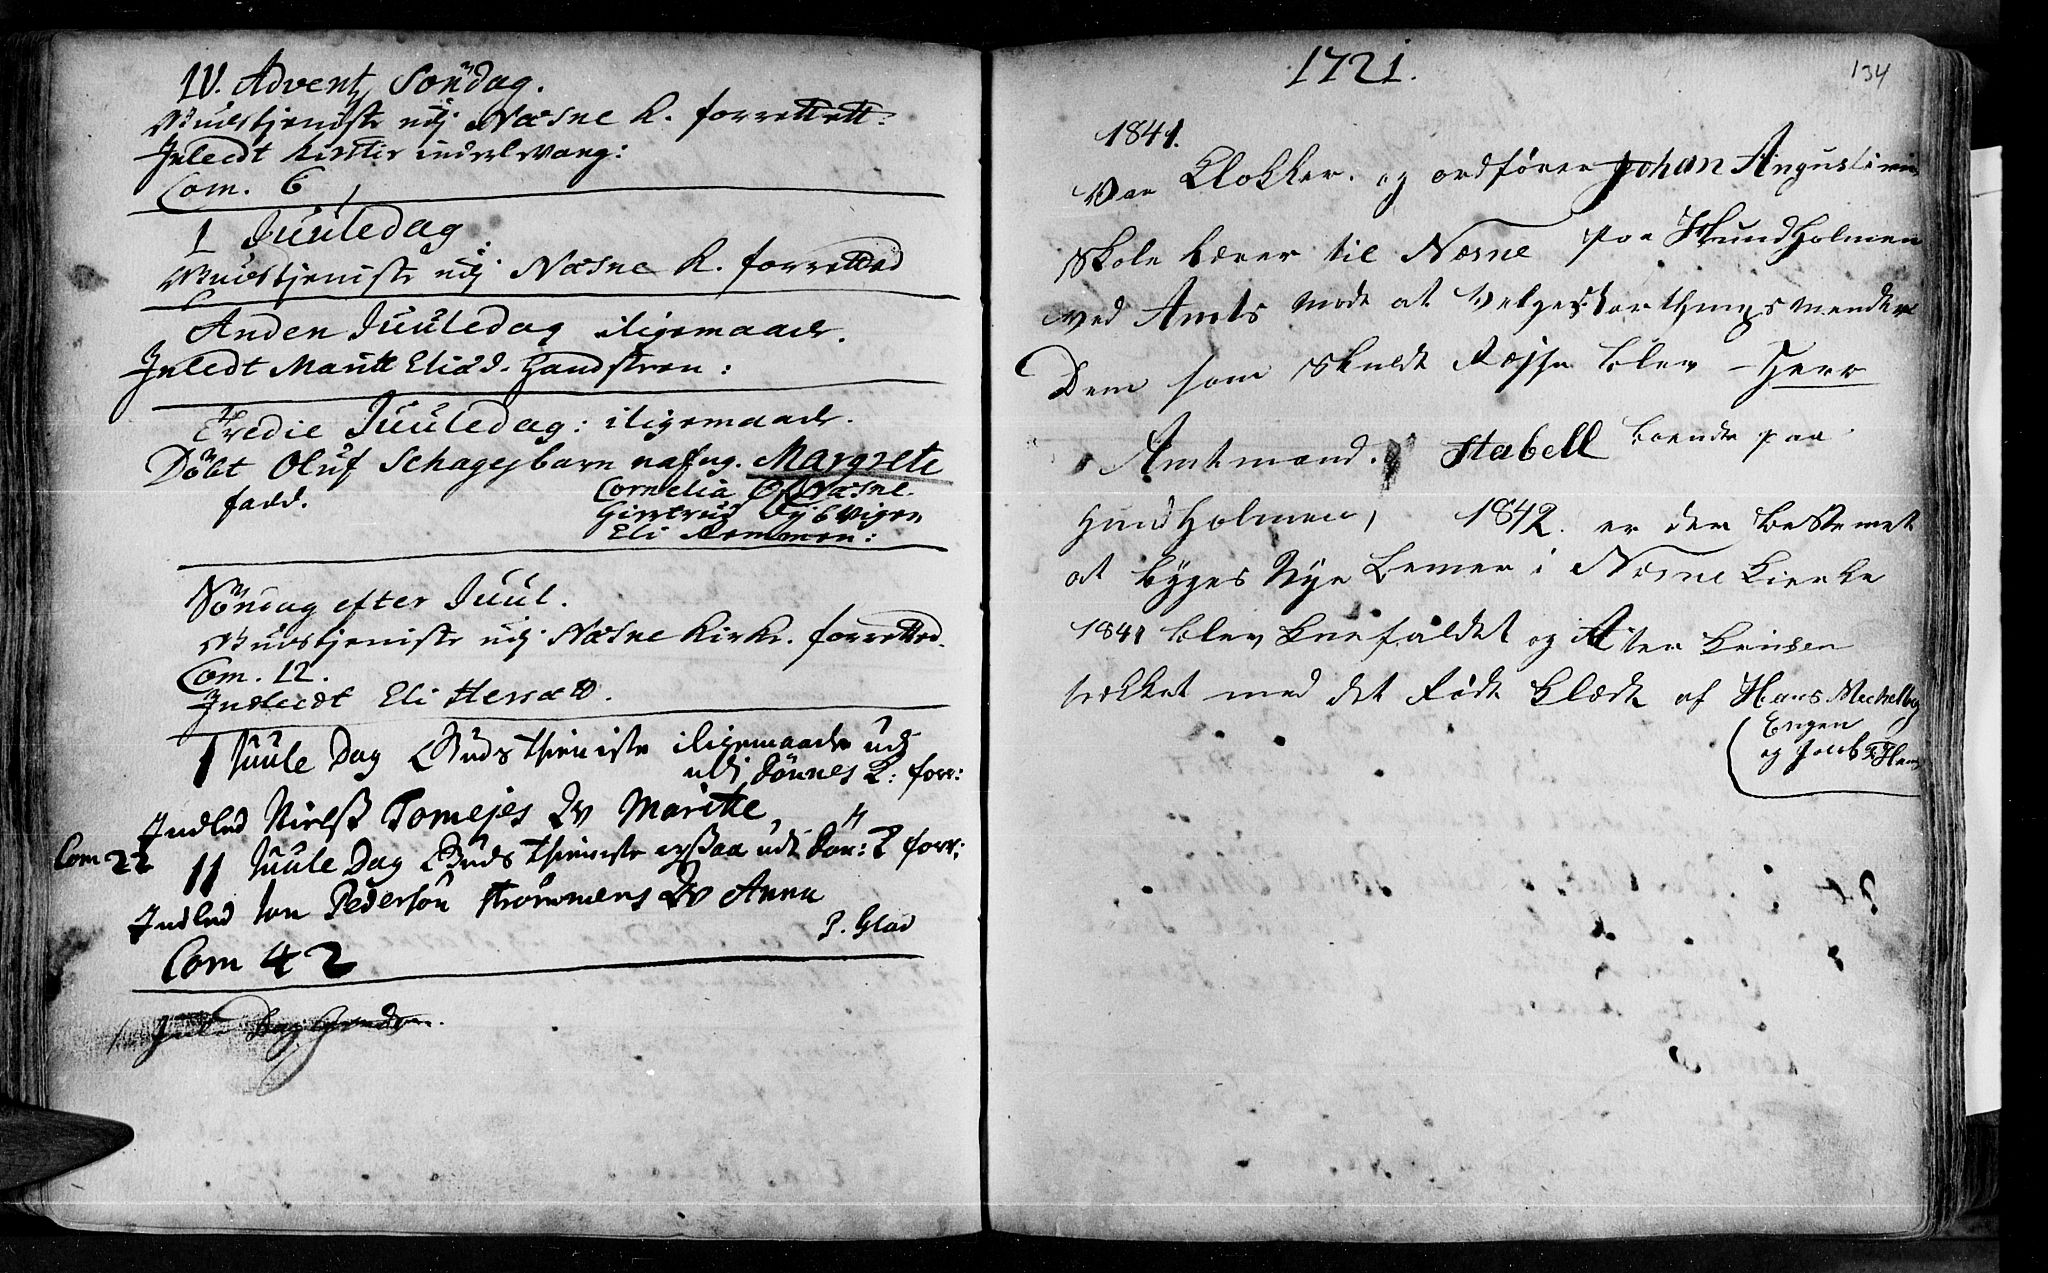 IV. Advent Söndag.
Gudstjeniste udj Næsne K. forrettett.
Inledt Kirstie
Com. 6
1 Juuledag
Gudstjeniste udj Næsne K. forretted
Anden Juuledag iligemaade.
Inledt Maritt Eliæd. Handsteen:
Tredie Juuledag: iligemaade.
Döbt Oluf Schagej barn nafng. Margrete
fadd. Cornelia Næsne.
Giertrud
Eli
Söndag efter Juul.
Gudstjeniste udj Næsne Kirke. forretted.
Com. 12.
Indledt Eli
1 Juule Dag Guds thieniste iligemaade udj
udj Dönnes K: forr:
Indled Nielß Tomesses Qv Maritte
Com 22
11 Juule Dag Guds thieniste ogsaa udi Dön: K forr:
Indled Jon Pedersön Strömmens Qv Anna
P. Glad
Com 42
1 Jule Dag
1721.
134
1841.
Var Klokker. og ordförer Johan Angustinus
Skole Lærer til Nesne paa Hundholmen
ved Amts Mode at Velge Storthings mender
Dem som skulde Rejse blev Herr
Amtmand. Stabell boende paa
Hundholmen, 1842. er der bestemet
at bÿges Nÿe i Nesne Kierke
1841 blev knefaldet og Alter
trekket med det Röde Klæde af Hans Mechelbg
Engen
og Jacob